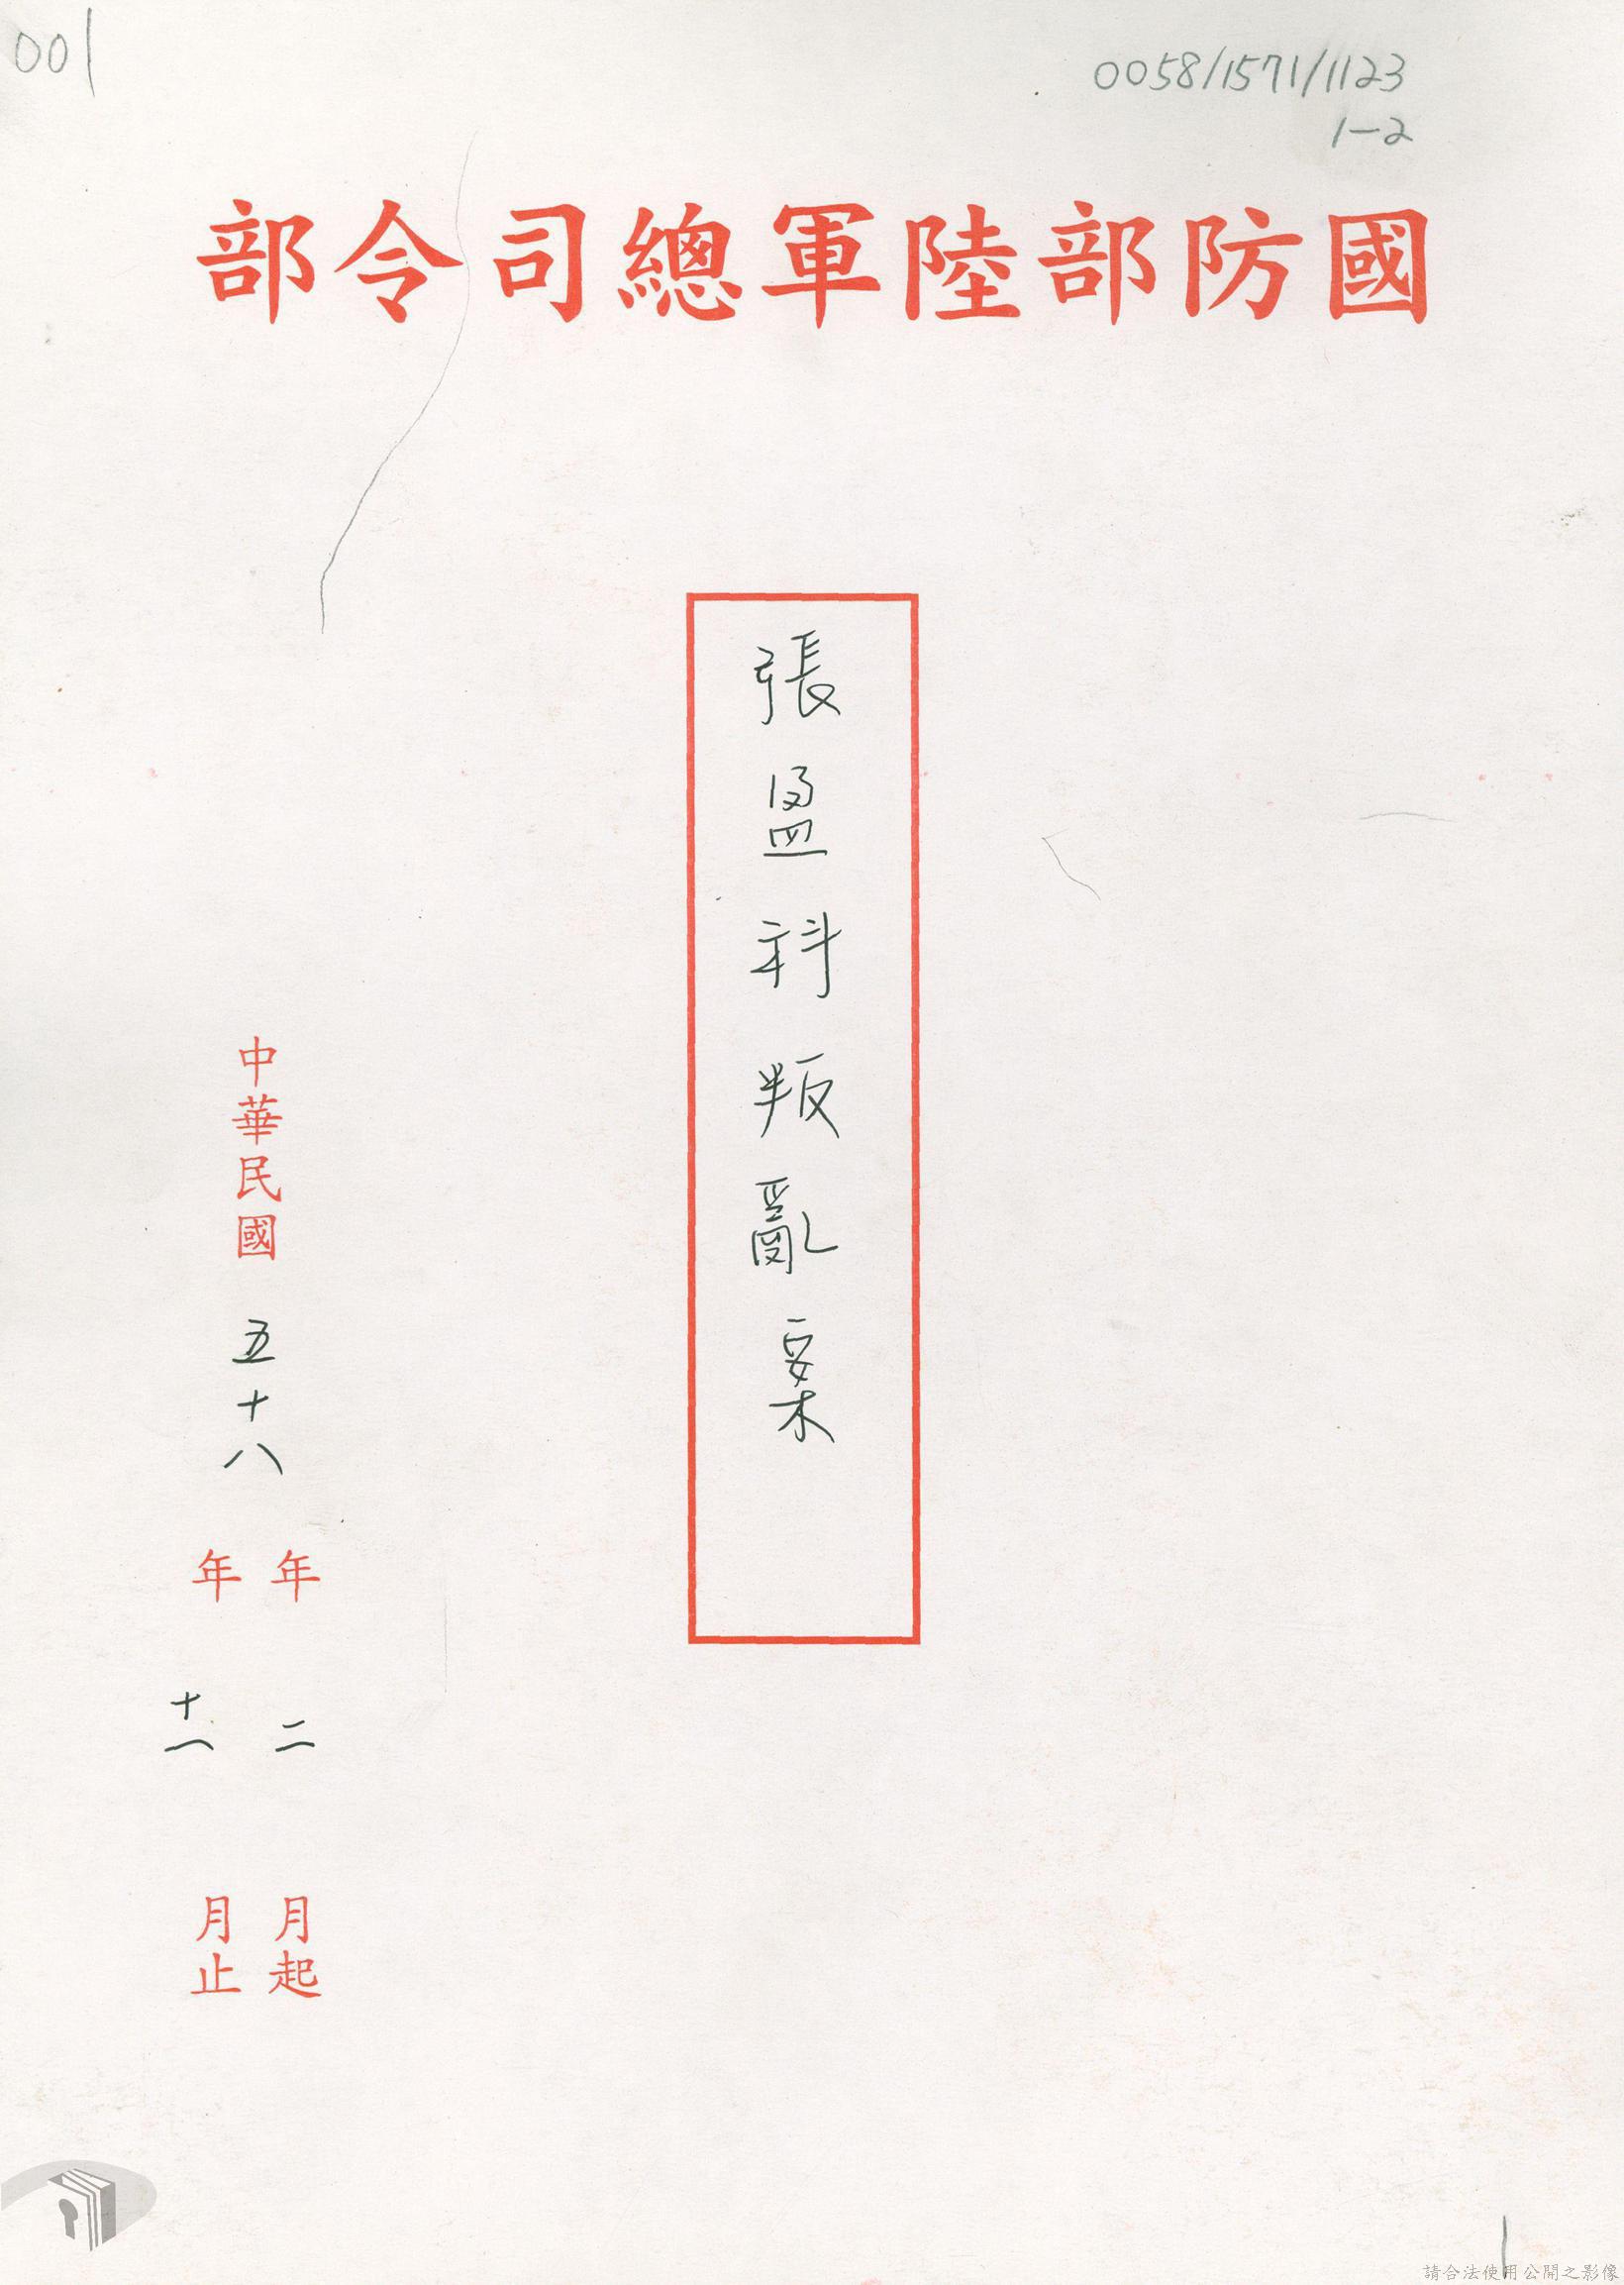 001
0058/1571/1123
1-2
國防部陸軍總司令部
張盈科叛亂案
中華民國五十八
年二月起
年十一月止
1
請合法使用公開之影像